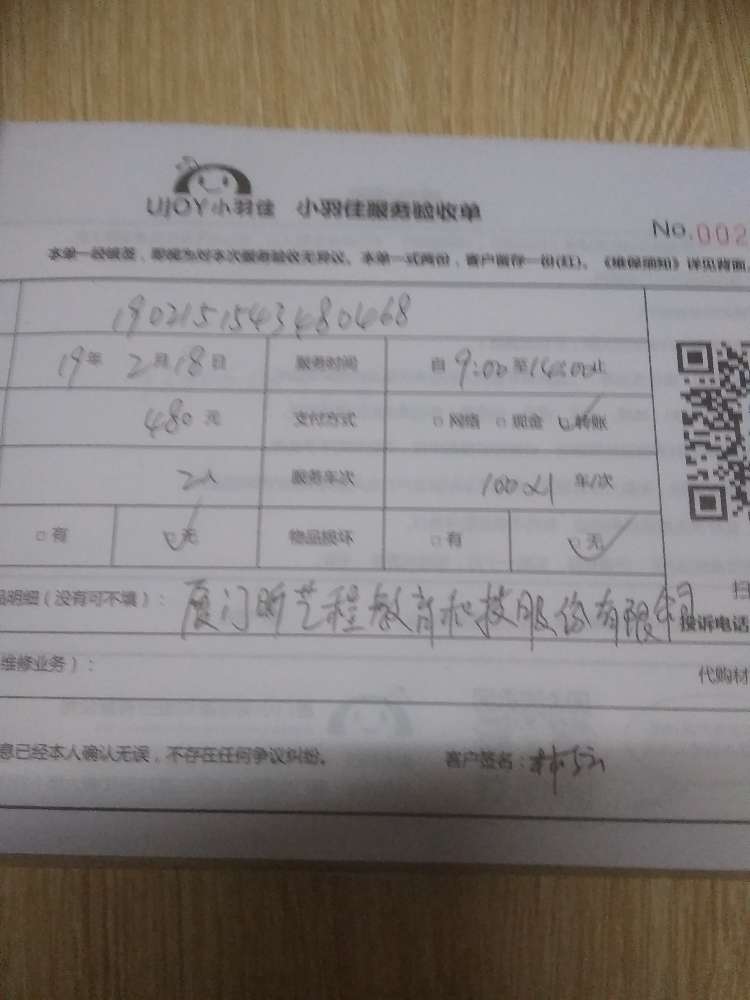 UJOY小羽佳 小羽佳服务验收单
No.002
本单一经填签，即视为对本次服务验收无异议。本单一式两份，客户留存一份(红)。《维保细则》详见背面。
1902151543480468
19年 2月18日 服务时间 自 9:00 至14:00止
480 元 支付方式 网络 现金 转账
2人 服务车次 车/次
有 无 物品损坏 有 无
品明细（没有可不填）： 厦门昕艺程教育科技股份有限公司 投诉电话
扫
维修业务）： 代购材
息已经本人确认无误，不存在任何争议纠纷。 客户签名：